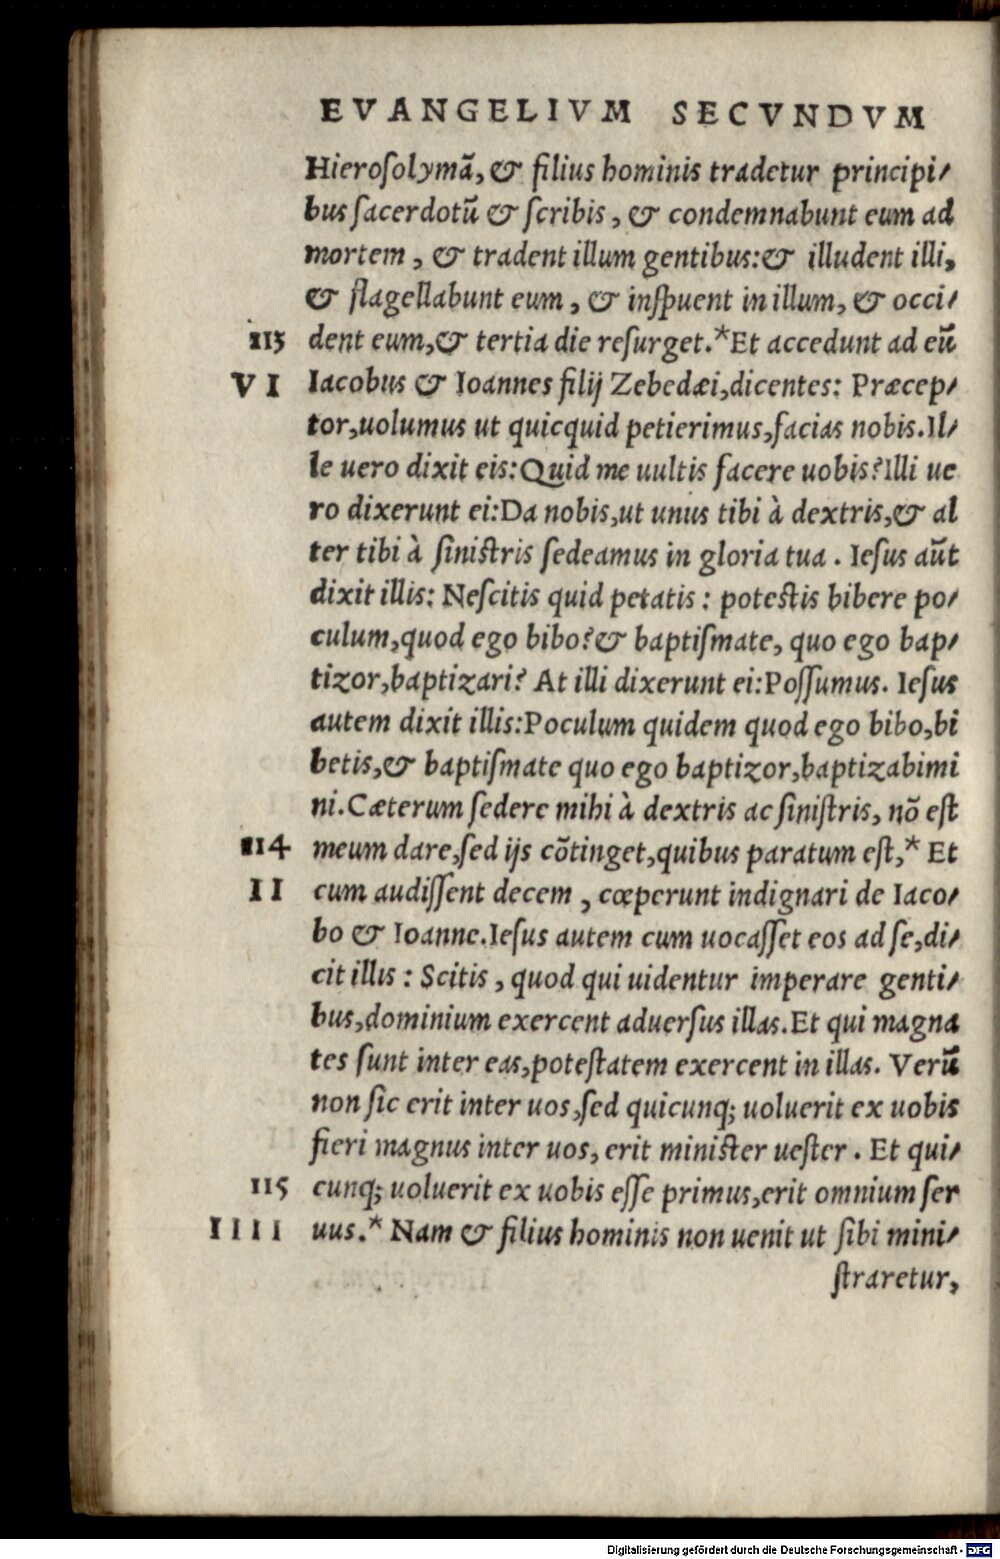 EVANGELIVM SECVNDVM
Hieroſolymã, & filius hominis tradetur principi/
bus ſacerdotũ & ſcribis, & condemnabunt eum ad
mortem, & tradent illum gentibus:& illudent illi,
& flagellabunt eum, & inſpuent in illum, & occi/
113 dent eum,& tertia die reſurget.*Et accedunt ad eũ
VI Iacobus & Ioannes filij Zebedæi,dicentes: Præcep/
tor,uolumus ut quicquid petierimus,facias nobis.Il/
le uero dixit eis:Quid me uultis facere uobis?Illi ue
ro dixerunt ei:Da nobis,ut unus tibi à dextris,& al
ter tibi à ſiniſtris ſedeamus in gloria tua. Ieſus aũt
dixit illis: Neſcitis quid petatis: poteſtis bibere po/
culum,quod ego bibo?& baptiſmate, quo ego bap/
tizor,baptizari? At illi dixerunt ei:Poſſumus. Ieſus
autem dixit illis:Poculum quidem quod ego bibo,bi
betis,& baptiſmate quo ego baptizor,baptizabimi
ni.Cæterum ſedere mihi à dextris ac ſiniſtris, nõ eſt
114 meum dare,ſed ijs cõtinget,quibus paratum eſt,* Et
II cum audiſſent decem, cœperunt indignari de Iaco/
bo & Ioanne.Ieſus autem cum uocaſſet eos ad ſe,di/
cit illis: Scitis, quod qui uidentur imperare genti/
bus,dominium exercent aduerſus illas.Et qui magna
tes ſunt inter eas,poteſtatem exercent in illas. Verũ
non ſic erit inter uos,ſed quicunq; uoluerit ex uobis
fieri magnus inter uos, erit miniſter ueſter. Et qui/
115 cunq; uoluerit ex uobis eſſe primus,erit omnium ſer
IIII uus.* Nam & filius hominis non uenit ut ſibi mini/
ſtraretur,
Digitalisierung gefördert durch die Deutsche Forschungsgemeinschaft - DFG